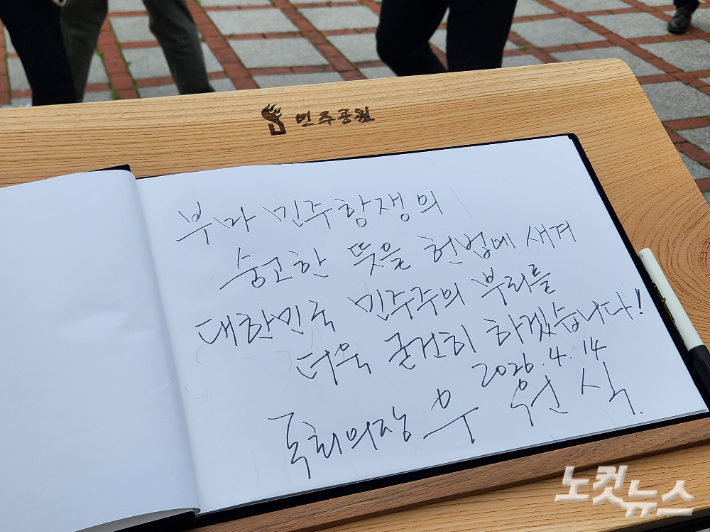 민주공원
부마 민주항쟁의
숭고한 뜻을 헌법에 새겨
대한민국 민주주의 뿌리를
더욱 굳건히 하겠습니다!
2026. 4. 14
국회의장 우 원 식.
노컷뉴스